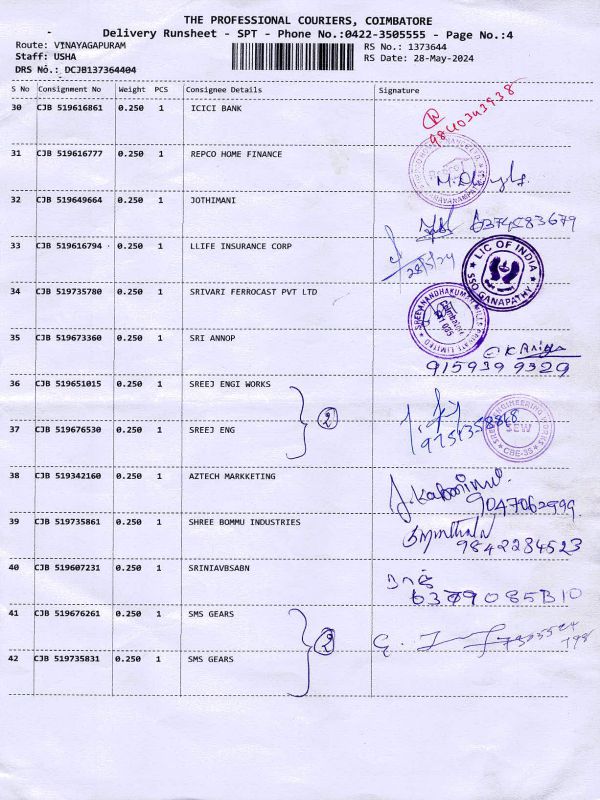 THE PROFESSIONAL COURIERS, COIMBATORE
Delivery Runsheet - SPT - Phone No.:0422-3505555 - Page No.:4
Route: VINAYAGAPURAM
RS No.: 1373644
Staff: USHA
RS Date: 28-May-2024
DRS No.: DCJB137364404
S No Consignment No Weight PCS Consignee Details Signature
30 CJB 519616861 0.250 1 ICICI BANK
31 CJB 519616777 0.250 1 REPCO HOME FINANCE
32 CJB 519649664 0.250 1 JOTHIMANI 6374683679
33 CJB 519616794 0.250 1 LLIFE INSURANCE CORP 28/5/24
LIC OF INDIA
SSO GANAPATHY
34 CJB 519735780 0.250 1 SRIVARI FERROCAST PVT LTD
35 CJB 519673360 0.250 1 SRI ANNOP
9159399329
36 CJB 519651015 0.250 1 SREEJ ENGI WORKS
2
SEW
CBE-35
37 CJB 519676530 0.250 1 SREEJ ENG
38 CJB 519342160 0.250 1 AZTECH MARKKETING
9047062999
39 CJB 519735861 0.250 1 SHREE BOMMU INDUSTRIES
9842284523
40 CJB 519607231 0.250 1 SRINIAVBSABN
41 CJB 519676261 0.250 1 SMS GEARS
2
42 CJB 519735831 0.250 1 SMS GEARS